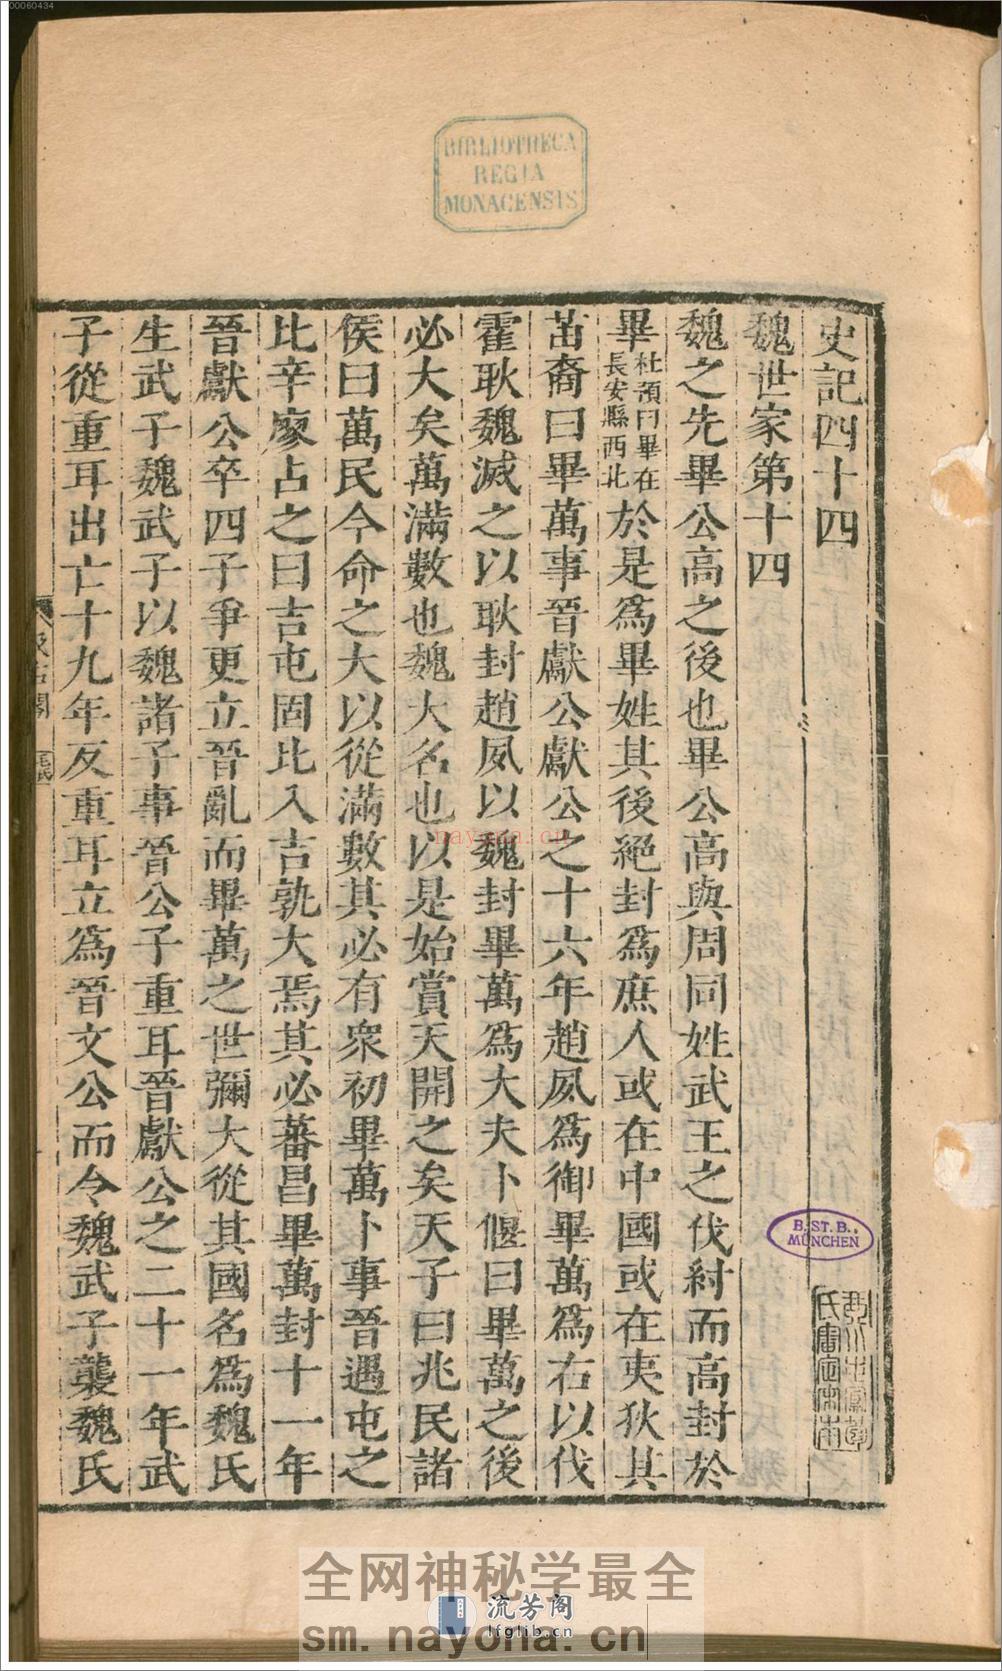 00060434
BIBLIOTHECA
REGIA
MONACENSIS
史記四十四
魏世家第十四
魏之先畢公高之後也畢公高與周同姓武王之伐紂而高封於
畢杜預曰畢在長安縣西北於是爲畢姓其後絕封爲庶人或在中國或在夷狄其
苗裔曰畢萬事晉獻公獻公之十六年趙夙爲御畢萬爲右以伐
霍耿魏滅之以耿封趙夙以魏封畢萬爲大夫卜偃曰畢萬之後
必大矣萬滿數也魏大名也以是始賞天開之矣天子曰兆民諸
侯曰萬民今命之大以從滿數其必有衆初畢萬卜事晉遇屯之
比辛廖占之曰吉屯固比入吉孰大焉其必蕃昌畢萬封十一年
晉獻公卒四子爭更立晉亂而畢萬之世彌大從其國名爲魏氏
生武子魏武子以魏諸子事晉公子重耳晉獻公之二十一年武
子從重耳出亡十九年反重耳立爲晉文公而令魏武子襲魏氏
B. ST. B.,
MÜNCHEN
nayona.cn
全网神秘学最全
流芳阁
lfglib.cn
sm.nayona.cn